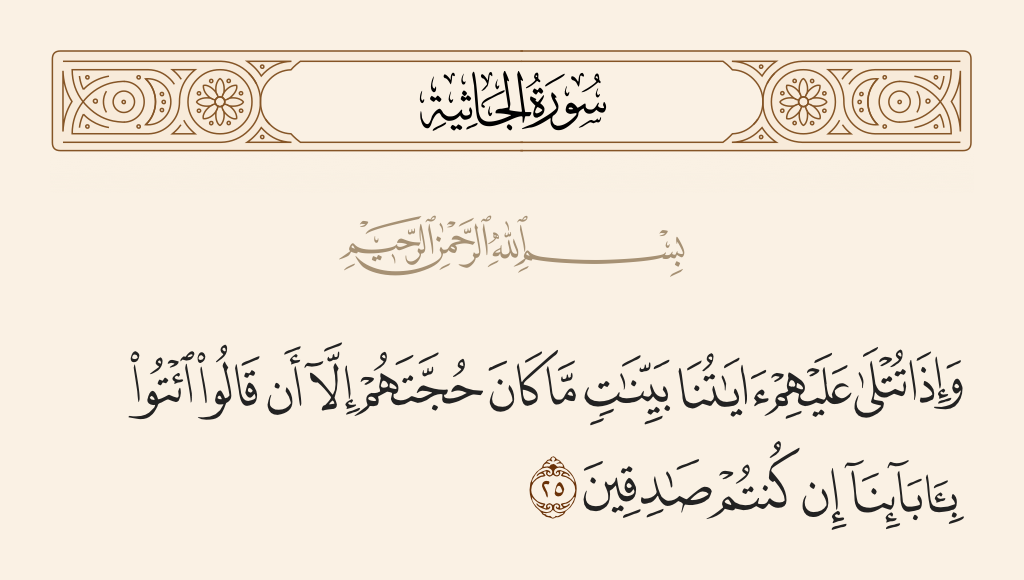 سُورَةُ الجَاثِيةِ
بِسْمِ ٱللَّهِ ٱلرَّحْمَٰنِ ٱلرَّحِيمِ
وَإِذَا تُتْلَىٰ عَلَيْهِمْ ءَايَٰتُنَا بَيِّنَٰتٍ مَّا كَانَ حُجَّتَهُمْ إِلَّآ أَن قَالُوا۟ ٱئْتُوا۟
بِـَٔابَآئِنَآ إِن كُنتُمْ صَٰدِقِينَ ٢٥